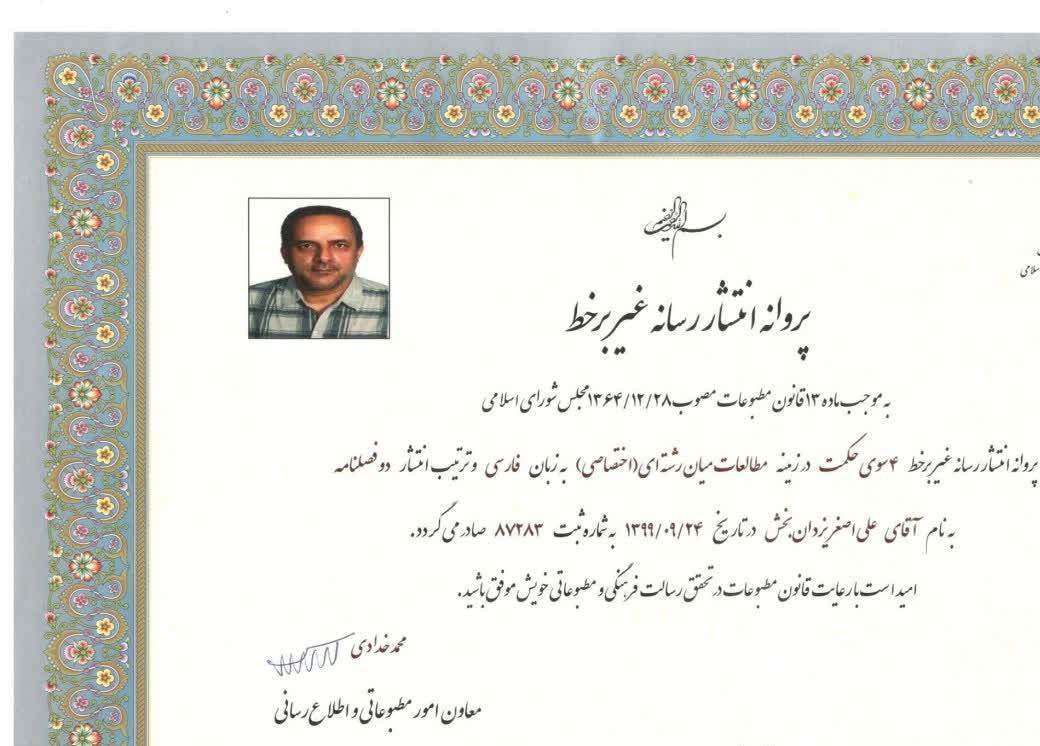 بسم الله الرحمن الرحیم
سلامی
پروانه انتشار رسانه غیر برخط
به موجب ماده ۱۳ قانون مطبوعات مصوب ۱۳۶۴/۱۲/۲۸ مجلس شورای اسلامی
پروانه انتشار رسانه غیربرخط ۴سوی حکمت در زمینه مطالعات میان رشته ای(اختصاصی) به زبان فارسی و ترتیب انتشار دو فصلنامه
به نام آقای علی اصغر یزدان بخش در تاریخ ۱۳۹۹/۰۹/۲۴ به شماره ثبت ۸۷۲۸۳ صادر می گردد.
امید است با رعایت قانون مطبوعات در تحقق رسالت فرهنگی و مطبوعاتی خویش موفق باشید.
محمد خدادی
معاون امور مطبوعاتی و اطلاع رسانی